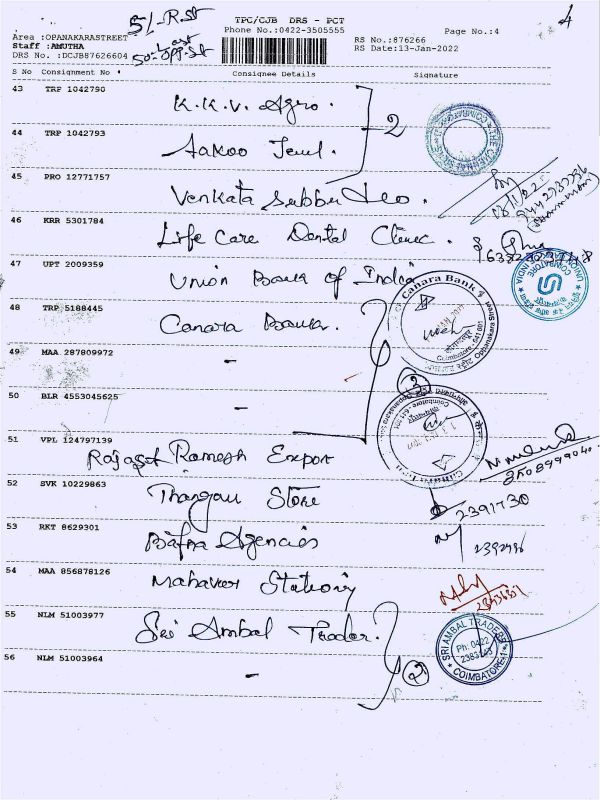 5/-R.St
4
TPC/CJB DRS - PCT
Phone No.:0422-3505555
Page No.:4
Area :OPANAKARASTREET
Staff :AMUTHA
DRS No. :DCJB87626604
RS No.:876266
RS Date:13-Jan-2022
S No Consignment No Consignee Details Signature
43 TRP 1042790
K.K.V. Agro.
2
44 TRP 1042793
45 PRO 12771757
Venkata Subbu Leo.
46 KRR 5301784
Life Care Dental Clinic.
47 UPT 2009359
Union Bank of India
48 TRP 5188445
Canara Bank.
Canara Bank
Coimbatore - 641 001
49 MAA 287809972
-
3
50 BLR 4553045625
-
51 VPL 124797139
Rajaset Ramesh Export
8508999040
52 SVK 10229863
Thangam Store
2391730
53 RKT 8629301
Bafna Agencies
54 MAA 856878126
Mahaveer Stationary
55 NLM 51003977
Sri Ambal Trader.
SRI AMBAL TRADERS
Ph: 0422
COIMBATORE-1
2
56 NLM 51003964
-